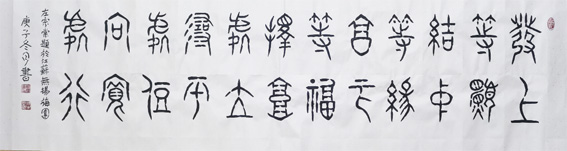 發上
等願
結中
等緣
享下
等福
擇高
處立
尋平
處住
向寬
處行
左宗棠題於江蘇無錫梅園
庚子冬月書